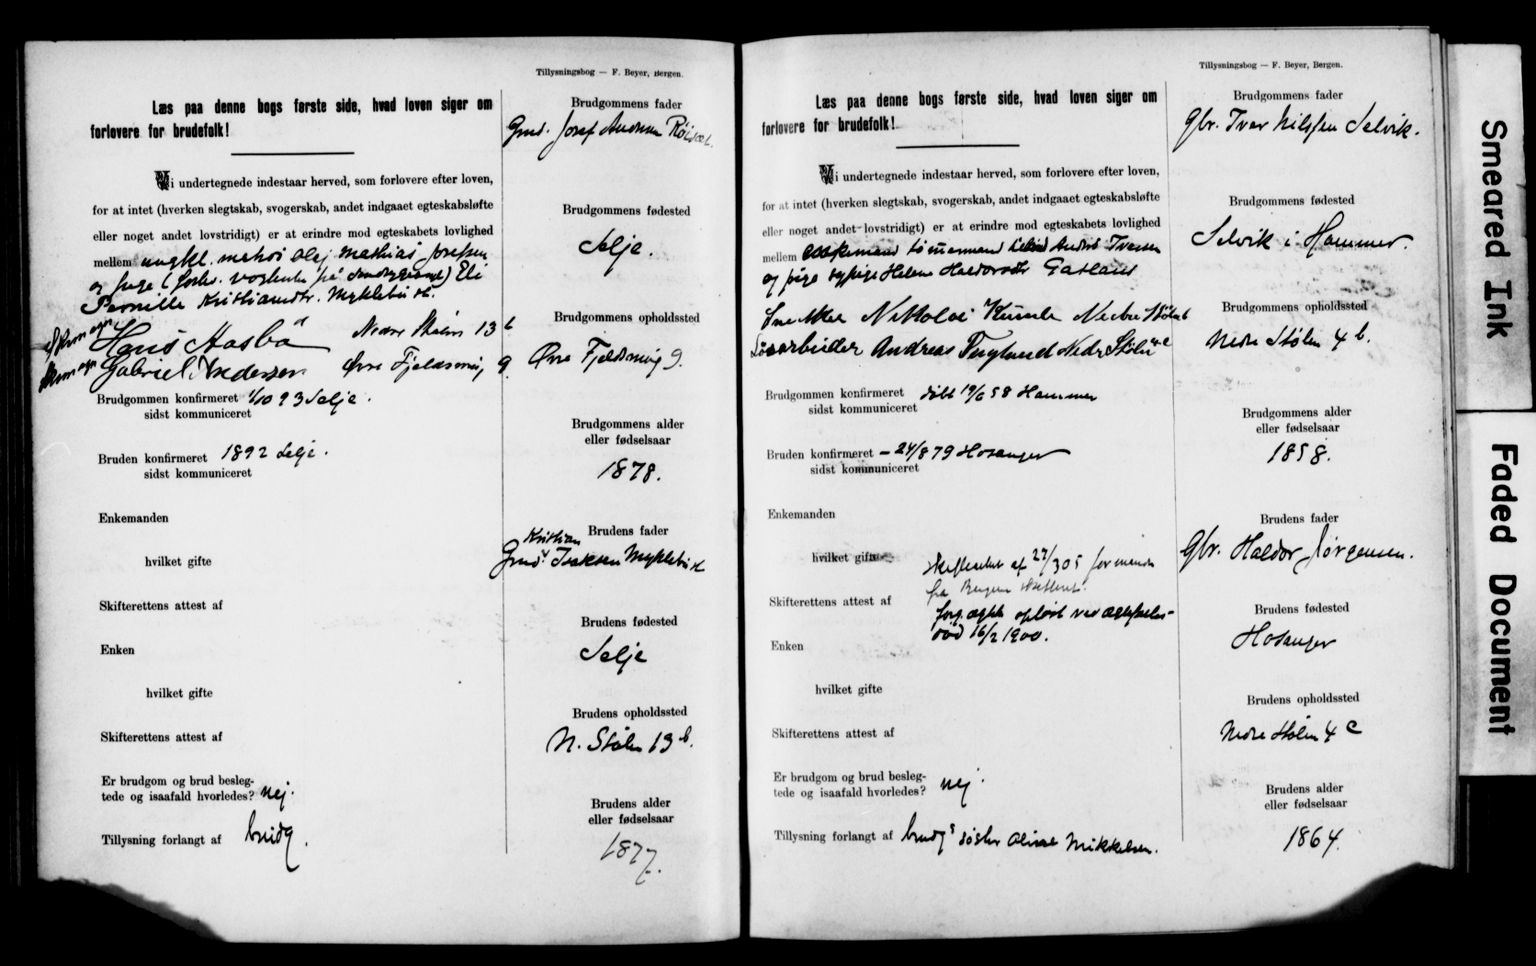 Tillysningsbog — F. Beyer, Bergen.
Læs paa denne bogs første side, hvad loven siger om
forlovere for brudefolk!
Vi undertegnede indestaar herved, som forlovere efter loven,
for at intet (hverken slegtskab, svogerskab, andet indgaaet egteskabsløfte
eller noget andet lovstridigt) er at erindre mod egteskabets lovlighed
mellem ungkl. Mathias Josefsen
og pige Eli
Pernille Kristiansdtr. Myklebust.
Hans Aasbø Nedre Stølen 13 b
Gabriel Andersen Øvre Fjeldsmug 9
Brudgommen konfirmeret 1/10 93 Selje.
sidst kommuniceret
Bruden konfirmeret 1892 Selje.
sidst kommuniceret
Enkemanden
hvilket gifte
Skifterettens attest af
Enken
hvilket gifte
Skifterettens attest af
Er brudgom og brud besleg-
tede og isaafald hvorledes? nej.
Tillysning forlangt af brudg.
Brudgommens fader
Gmd. Josef
Brudgommens fødested
Selje.
Brudgommens opholdssted
Øvre Fjeldsmug 9.
Brudgommens alder
eller fødselsaar
1878.
Brudens fader
Kristian
Gmd. Isaksen Myklebust
Brudens fødested
Selje
Brudens opholdssted
N. Stølen 13 b.
Brudens alder
eller fødselsaar
1877.
Tillysningsbog — F. Beyer, Bergen.
Læs paa denne bogs første side, hvad loven siger om
forlovere for brudefolk!
Vi undertegnede indestaar herved, som forlovere efter loven,
for at intet (hverken slegtskab, svogerskab, andet indgaaet egteskabsløfte
eller noget andet lovstridigt) er at erindre mod egteskabets lovlighed
mellem enkemand tømmermand Iversen
og pige sypige Helene Haldorsdtr Gatland
Snekker Nikolai Nedre Stølen
Løsarbeider Andreas Nedre Stølen 4 c
Brudgommen konfirmeret døbt 19/6 58 Hammer
sidst kommuniceret
Bruden konfirmeret – 24/8 79 Hosanger
sidst kommuniceret
Enkemanden
hvilket gifte
Skifterettens attest af
Skifteattest af 27/3 05
fra Bergens skifteret.
forg. ægtsk. opløst ved ægtefælles
død 16/2 1900.
Enken
hvilket gifte
Skifterettens attest af
Er brudgom og brud besleg-
tede og isaafald hvorledes? nej.
Tillysning forlangt af brudg s søster Oline Mikkelsen.
Brudgommens fader
Gbr. Iver Nilssen Selvik.
Brudgommens fødested
Selvik i Hammer.
Brudgommens opholdssted
Nedre Stølen 4 b.
Brudgommens alder
eller fødselsaar
1858.
Brudens fader
Gbr. Haldor Jørgensen.
Brudens fødested
Hosanger
Brudens opholdssted
Nedre Stølen 4 c
Brudens alder
eller fødselsaar
1864.
Smeared Ink
Faded Document